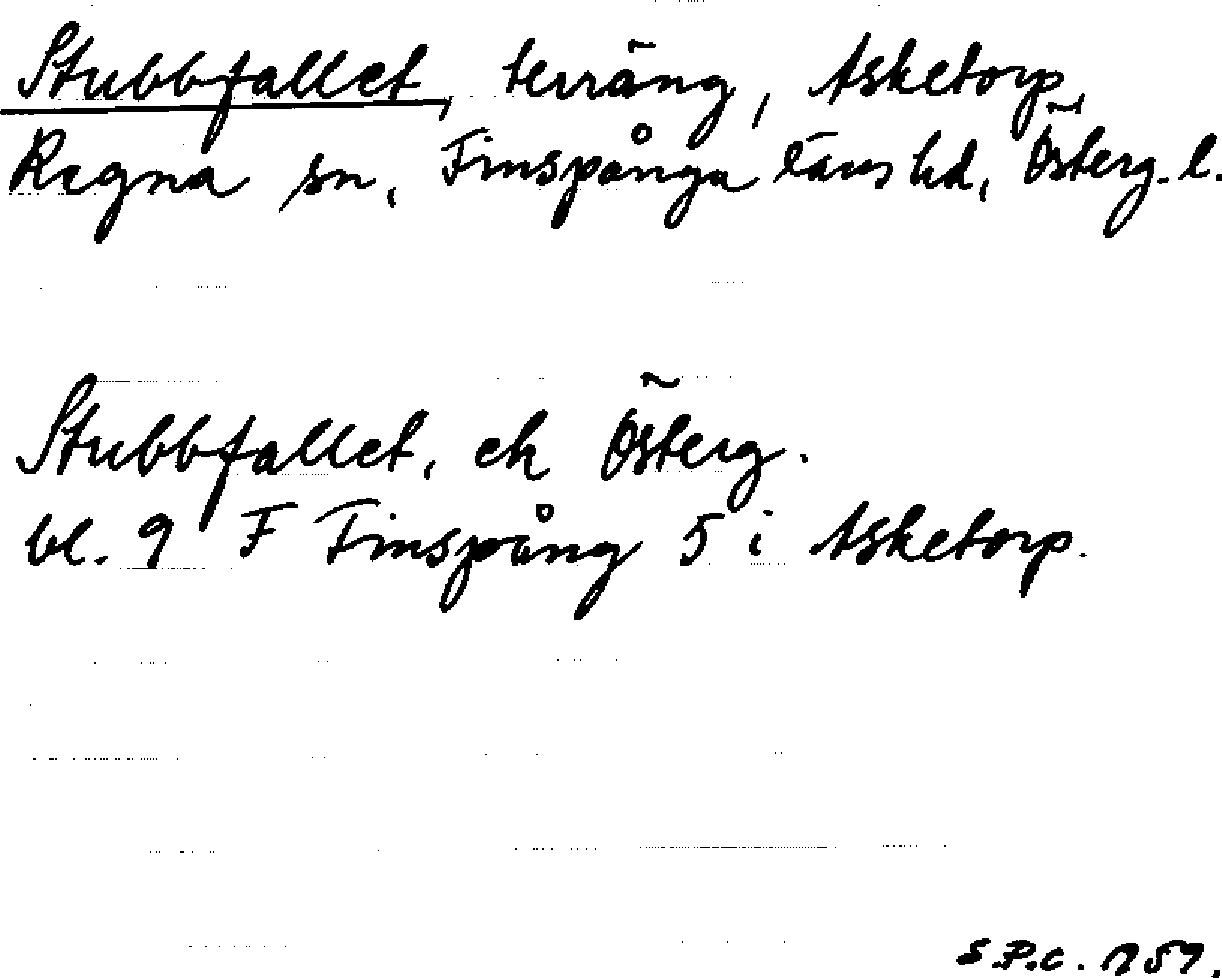 Stubbfallet, terräng, Asketorp,
Regna sn, Finspånga läns hd, Österg. l.
Stubbfallet, ek Österg.
bl. 9 F Finspång 5 i Asketorp.
S.P.C. 1959.